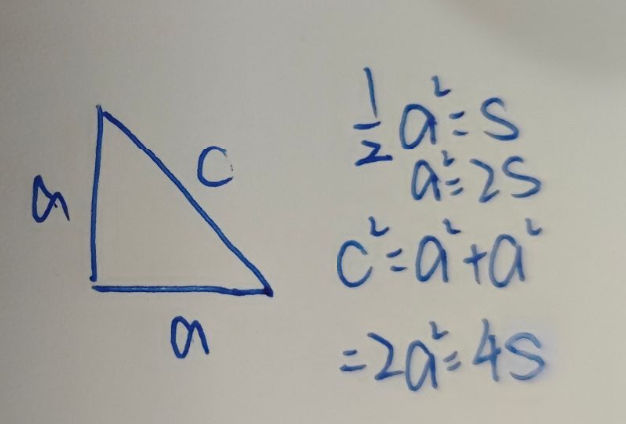 a
c
a
½a²=S
a²=2S
c²=a²+a²
=2a²=4S